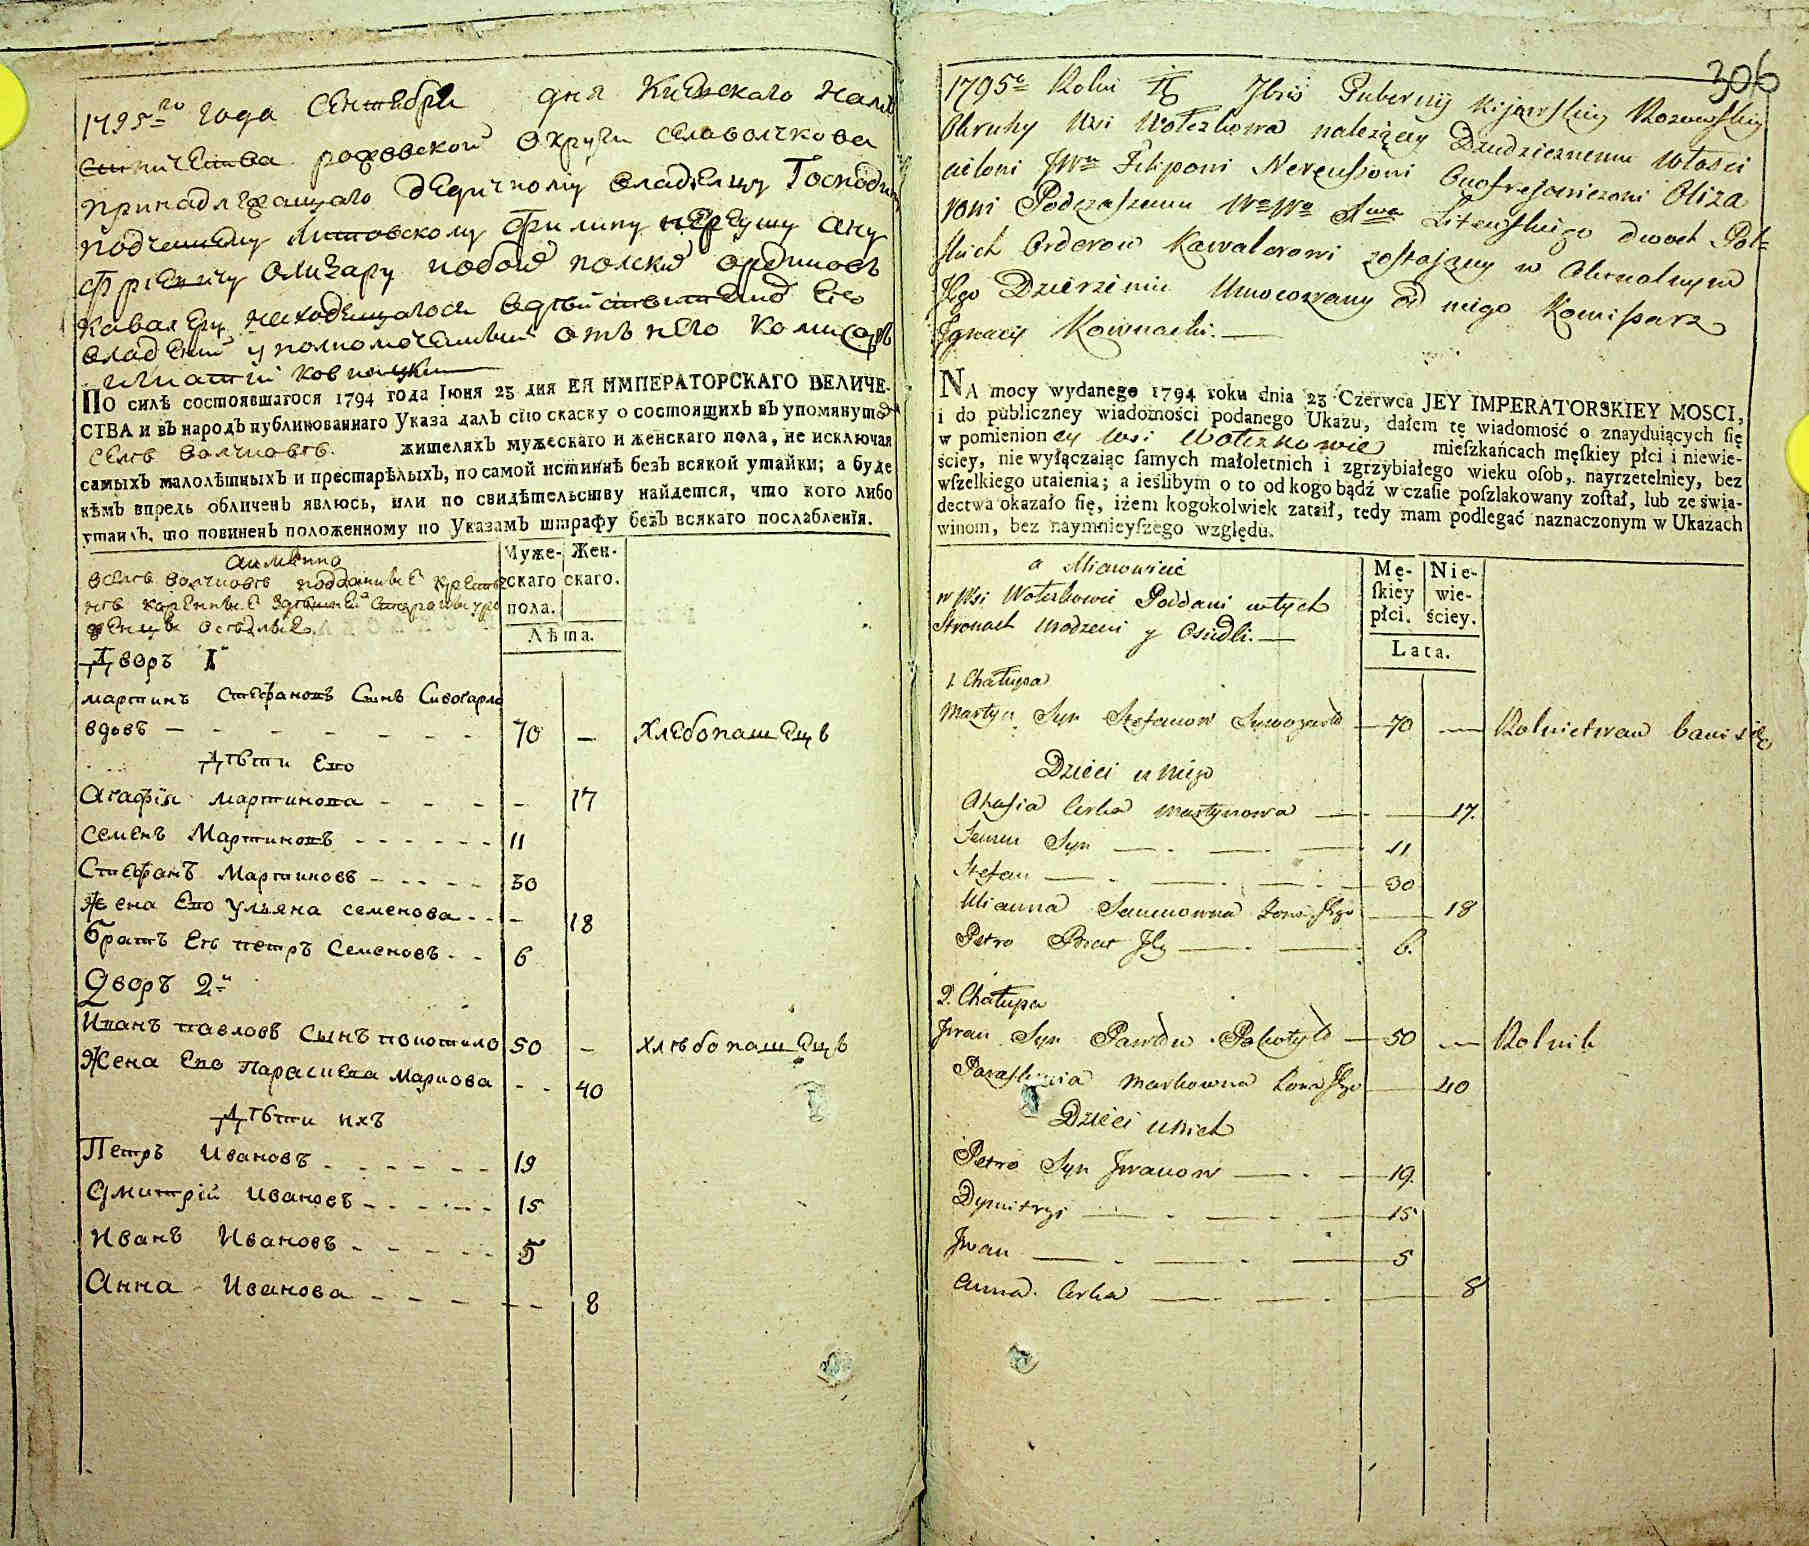 1795го года Сентебря дня Киевскаго наме
сничества рафовской округи села волчкова
принадлежащаго дедичному владелцу Господину
подчешему литовскому Филипу нереушу ану
фриевичу Олизару обоих полских ординовъ
кавалеру находещагося вдействително его
владении уполномоченный отъ него комисаръ
игнатий ковнацкий
По силѣ состоявшагося 1794 года Iюня 23 дня ЕЯ ИМПЕРАТОРСКАГО ВЕЛИЧЕ-
СТВА и въ народъ публикованнаго Указа далъ сїю скаску о состоящихъ въ упомянутой
селѣ волчковѣ. жителяхъ мужескаго и женскаго пола, не исключая
самыхъ малолѣтныхъ и престарѣлыхъ, по самой истиннѣ безъ всякой утайки; а буде
кѣмъ впредь обличенъ явлюсь, или по свидѣтельству найдется, что кого либо
утаилъ, то повиненъ положенному по Указамъ штрафу безъ всякаго послабленїя.
аимѣнно
вселѣ волчковѣ подданные
Муже-скаго пола. Жен-скаго.
Лѣта.
Дворъ 1й
мартинъ Стефановъ Сынъ Сивогарло
вдовъ 70 — Хлебопашецъ
Дѣти Его
Агафiя мартинова - 17
семенъ Мартиновъ 11
Стефанъ Мартиновъ 30
Жена Его Ульяна семенова - 18
братъ Ее петръ Семеновъ 6
Дворъ 2й
Иванъ павловъ сынъ покотило 50 — хлѣбопашецъ
Жена Его Параскева Маркова - 40
Дѣти ихъ
Петръ Ивановъ 19
Дмитрiй ивановъ 15
Иванъ Ивановъ 5
Анна Иванова - 8
306
1795o Roku 7bris Gubernij Kijowskiey
Okruhy Wsi Wołczkowa należący Dziedzicznemu Włości
cielowi JWu Filipowi Nereuszowi Onofrejowiczowi Oliza
rowi Podczaszemu Litewskiego dwoch Pol
skich Orderow Kawalerowi zostający w Aktualnym
Jego Dzierżeniu Umocowany od niego Komisarz
Ignacy Kownacki. —
NA mocy wydanego 1794 roku dnia 23 Czerwca JEY IMPERATORSKIEY MOSCI,
i do publiczney wiadomości podanego Ukazu, dałem tę wiadomość o znayduiących się
w pomienioney wsi Wołczkowie mieszkańcach męskiey płci i niewie-
ściey, nie wyłączaiąc samych małoletnich i zgrzybiałego wieku osob, nayrzetelniey, bez
wszelkiego utaienia; a ieślibym o to od kogo bądź w czasie poszlakowany został, lub ze świa-
dectwa okazało się, iżem kogokolwiek zataił, tedy mam podlegać naznaczonym w Ukazach
winom, bez naymnieyszego względu.
a Mianowicie
w Wsi Wołczkowie Poddani w tych
Stronach Urodzeni y Osiedli. —
Mę-skiey płci. Nie-wie-ściey.
Lata.
1. Chałupa
Martyn Syn Stefanow Sywogarło — 70 —
Dzieci u Niego
Ahafia Corka Martynowa — 17.
Semen Syn — 11
Stefan — 30
Ulianna Semenowna Żona Jego — 18
Petro Brat Jey — 6.
2. Chałupa
Jwan Syn Pawła Pokotyło — 50 — Rolnik
Paraskewia Markowna Żona Jego — 40
Dzieci u Nich
Petro Syn Jwanow — 19.
Dymitry — 15
Jwan — 5
Anna Corka — 8